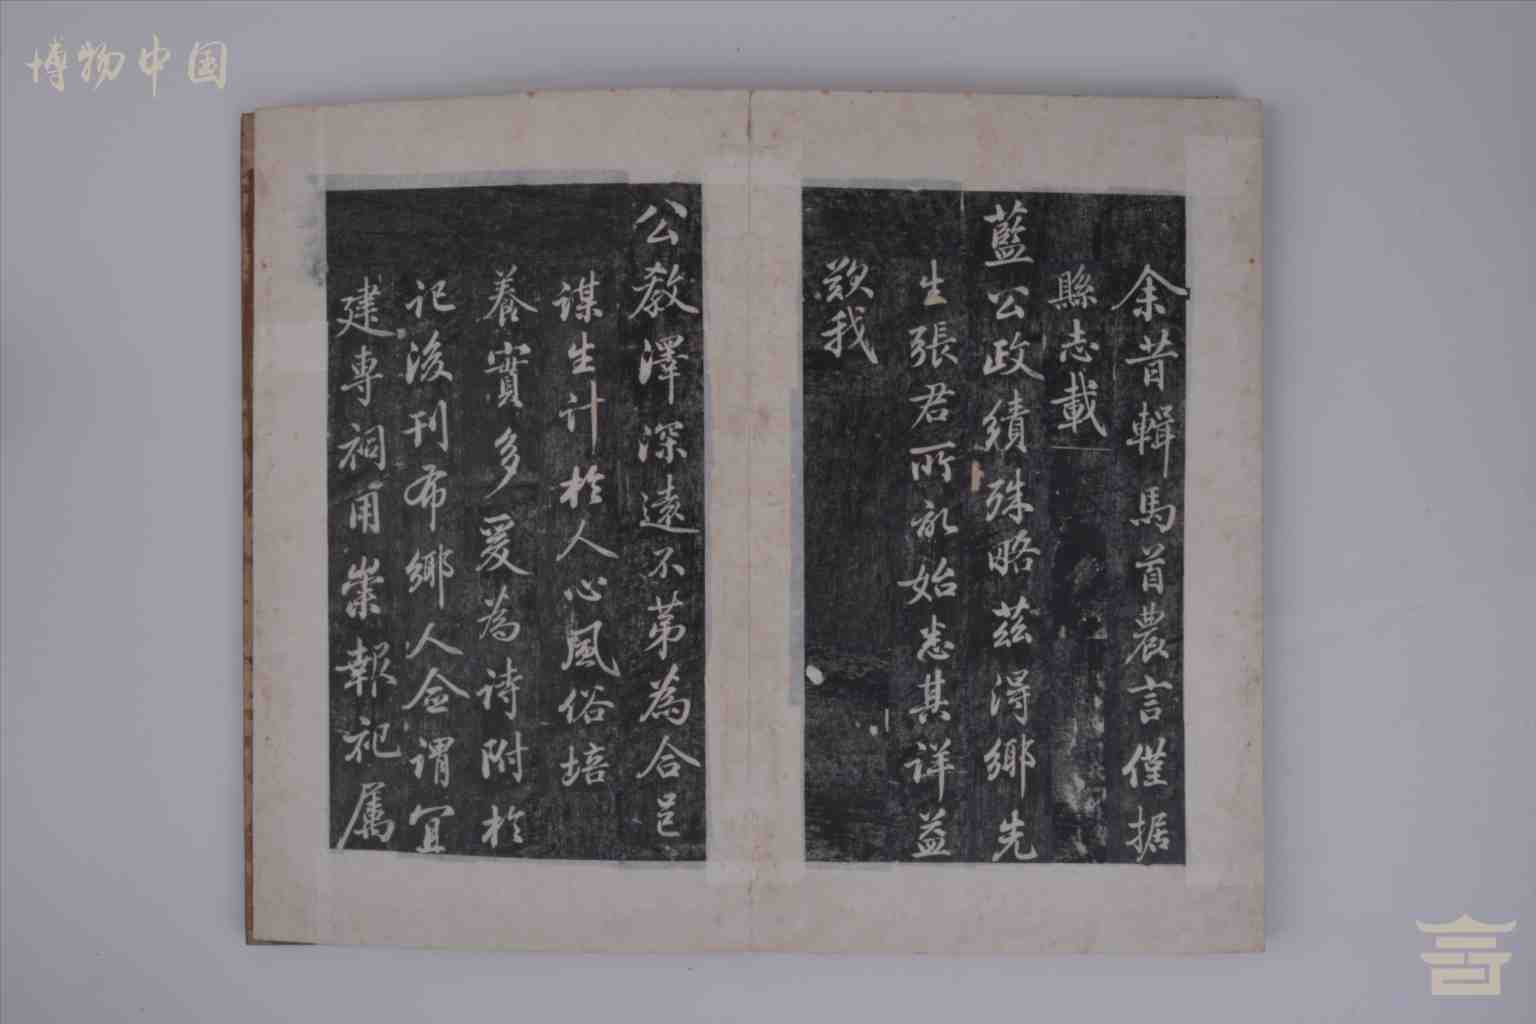 博物中国
余昔輯馬首農言僅據
縣志載
藍公政績殊略茲得鄉先
生張君所永始悉其詳益
歎我
公教澤深遠不第為合邑
謀生計於人心風俗培
養實多爰為詩附於
記後刊布鄉人僉謂宜
建專祠用崇報祀属